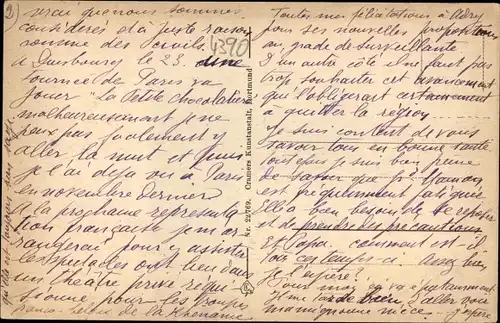 2)
vrai que nous sommes
considérés et à juste raison
comme des
4390
à Duisbourg le 23
tournée de Paris va
jouer "La Petite Chocolatière"
malheureusement je ne
peux pas seulement y
aller la nuit et puis
je l'ai déjà vu à Paris
en novembre dernier
à la prochaine représenta
tion française je m'ar
rangerai pour y assister
les spectacles ont lieu dans
un théâtre privé réqui
sitionné pour les troupes
de la Rhénanie
Nr. 22769. Cramers Kunstanstalt, Dortmund
Toutes mes félicitations à
pour ses nouvelles
au grade de surveillante
D'un autre côté il ne faut pas
trop souhaiter cet avancement
qui l'obligerait certainement
à quitter la région
Je suis content de vous
savoir tous en bonne santé
toutefois je suis bien peiné
de savoir que
est régulièrement fatiguée
Elle a bien besoin de se reposer
et de prendre des précautions
et Papa. comment est-il
tous ces temps-ci. Assez bien
je l'espère!
Pour moi ça va également
et me tarde bien d'aller voir
ma mignonne nièce